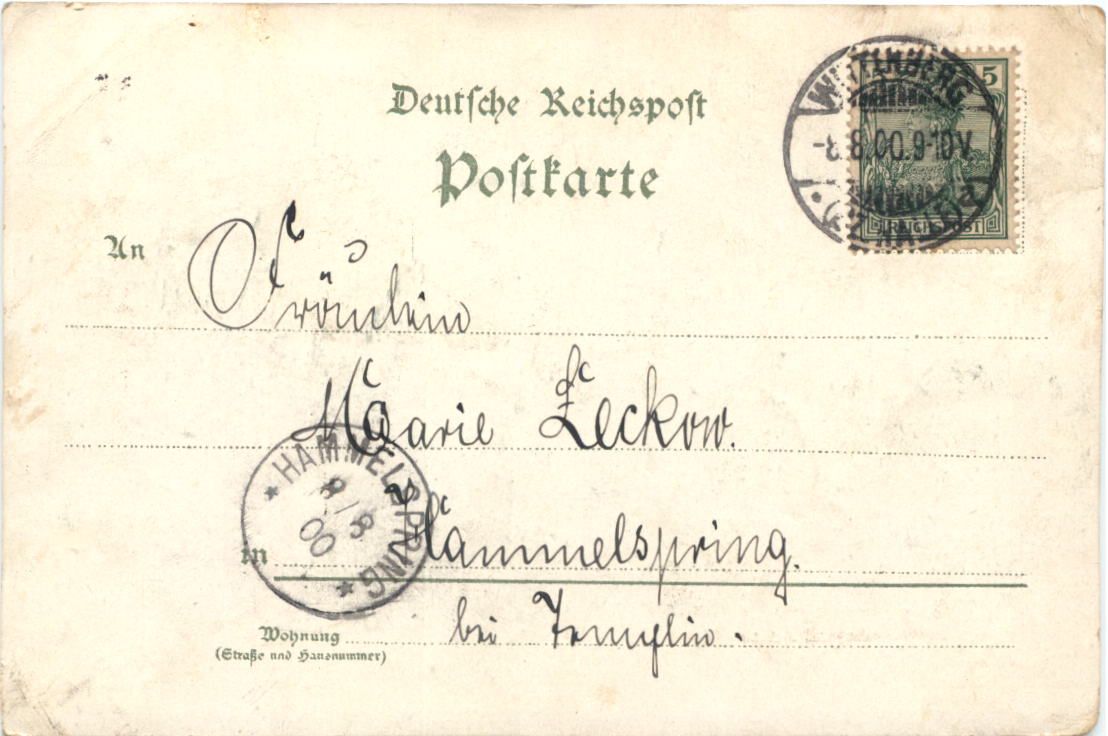 Deutsche Reichspost
Postkarte
WITTENBERG
-8.8.00.9-10V.
5
REICHSPOST
An
Fräulein
Marie Leckow.
HAMMELSPRING
8/8
00
in Hammelspring.
bei Templin.
Wohnung
(Straße und Hausnummer)